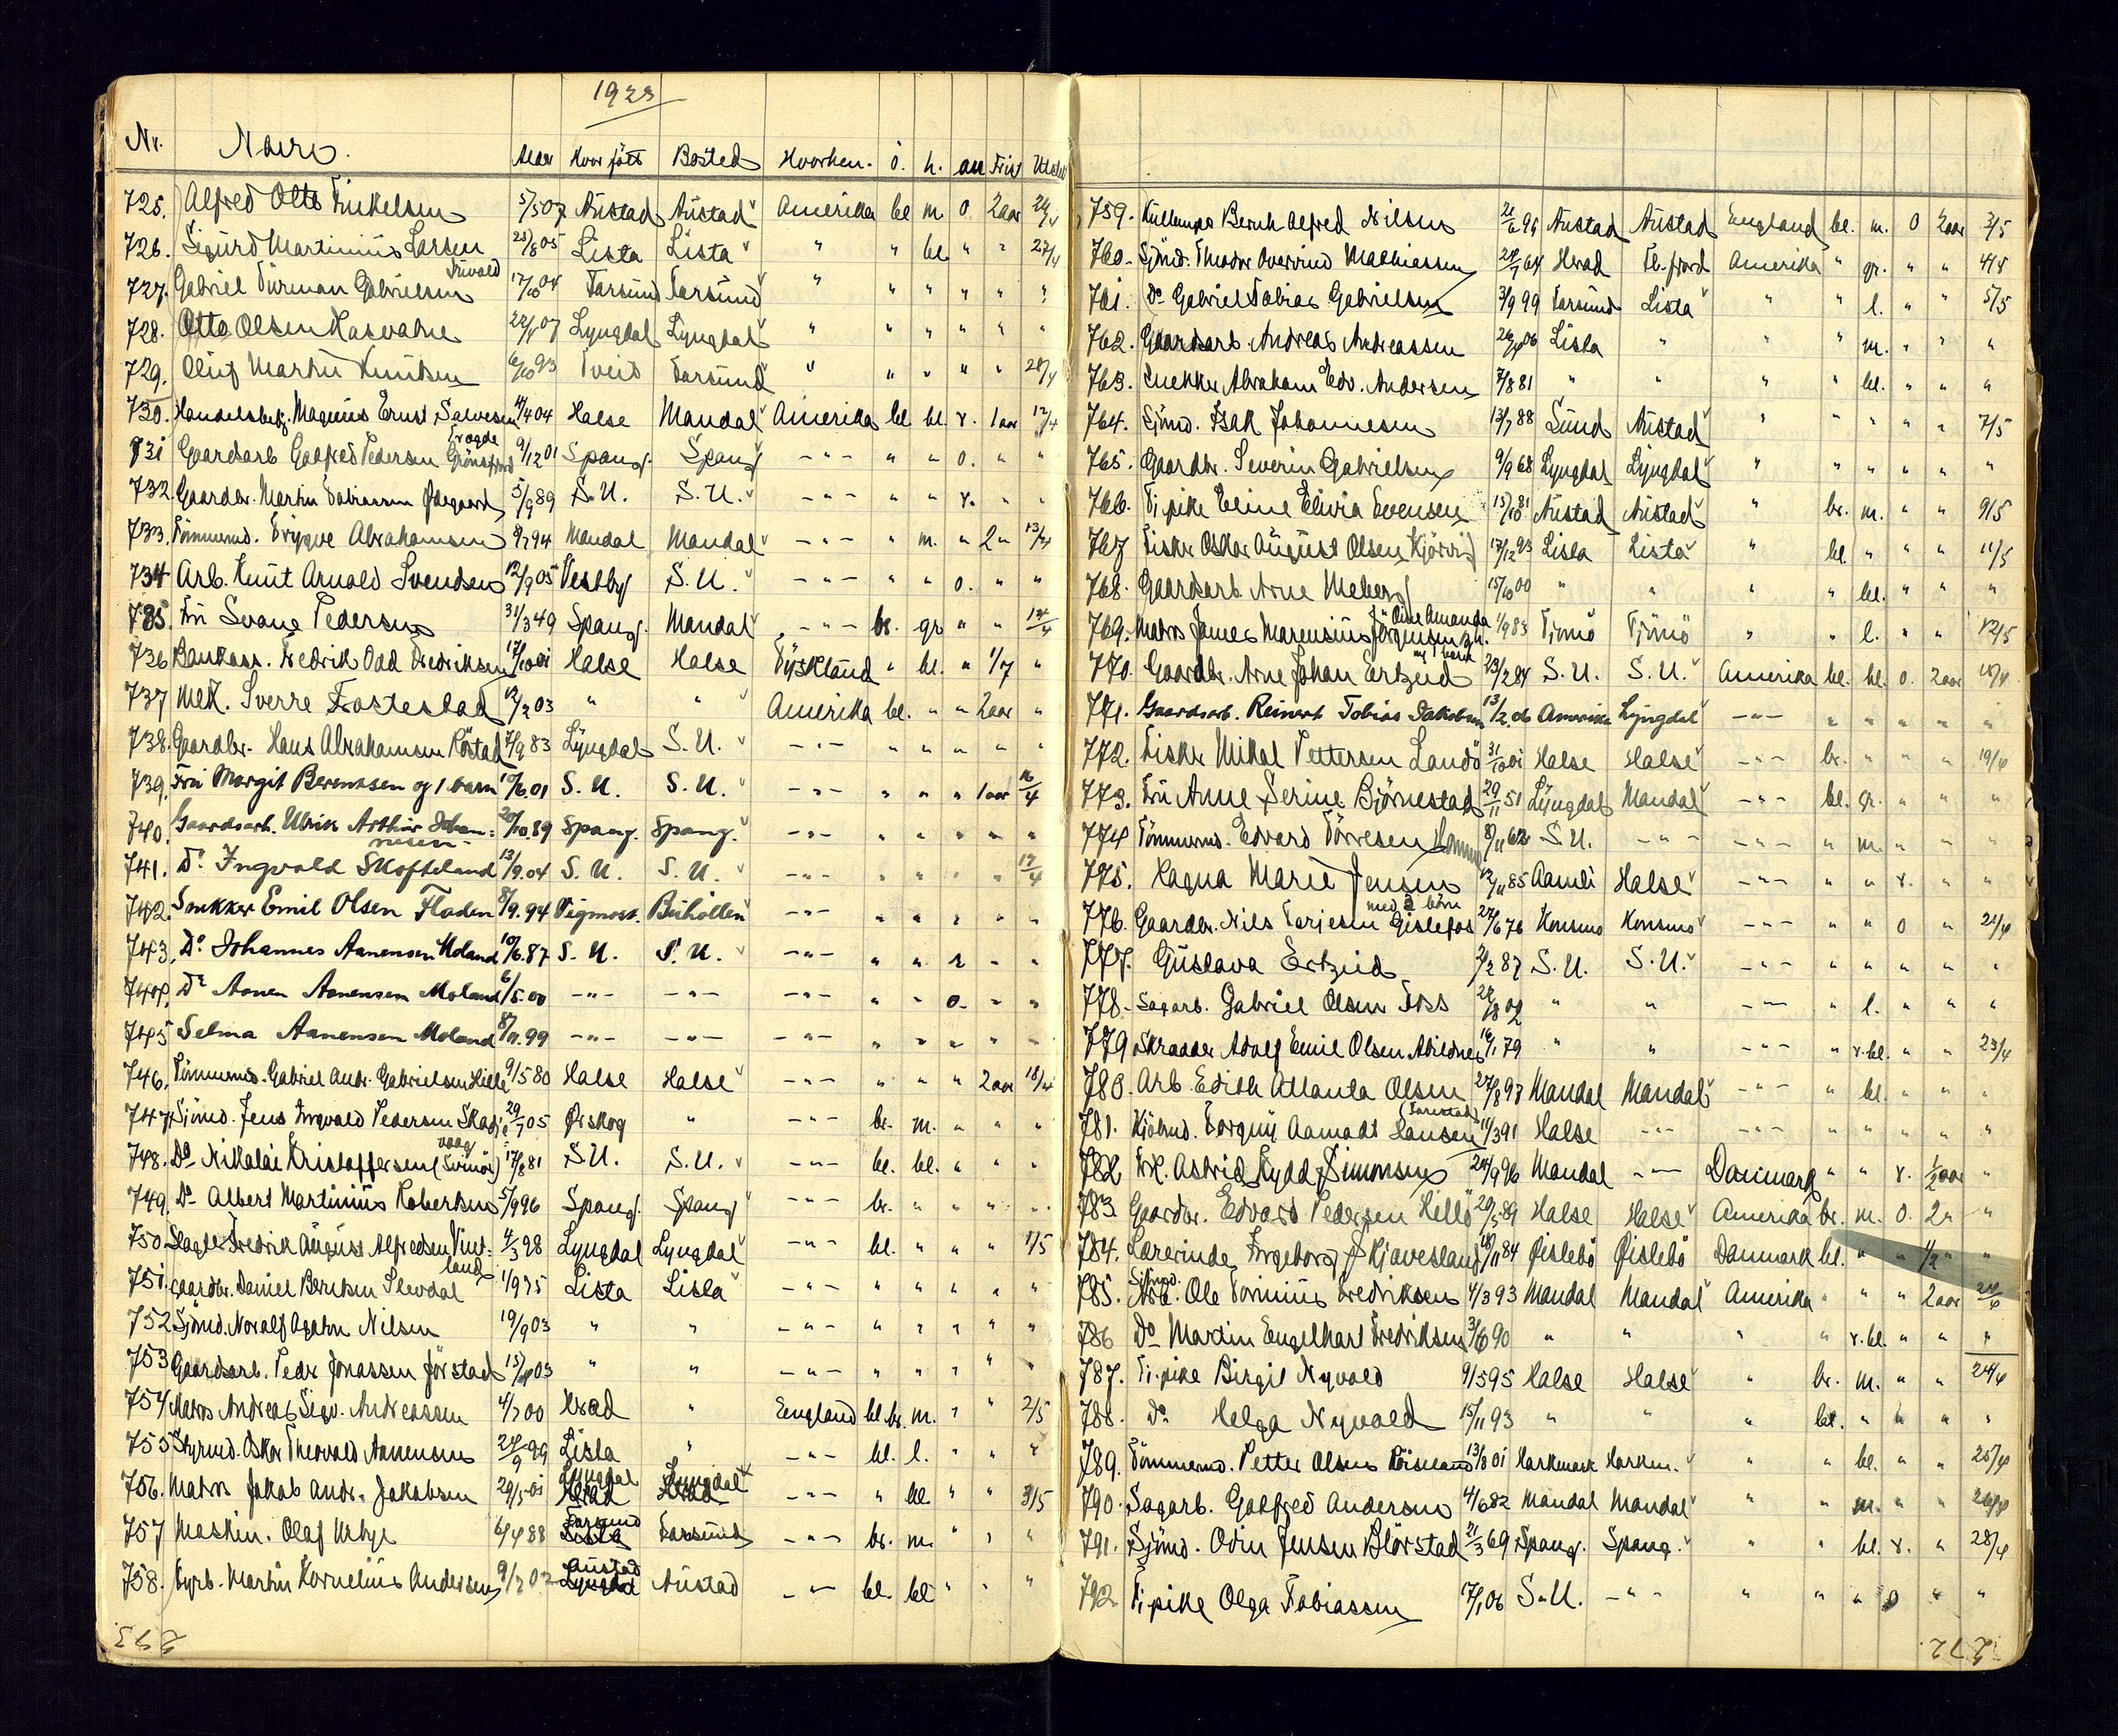 1923
Nr. Navn. Alder Hvor født Bosted Hvorhen. ö. h. an Frist Utstedt
725. Alfred Otto Finkelsen 5/5 07 Austad Austad Amerika bl m. o. 2 aar 26/4
726. Sigurd Martinius Larsen 25/8 05 Lista Lista " " bl. " " 27/4
727. Gabriel Furman Gabrielsen 17/10 04 Farsund Farsund " " " " " "
728. Otto Olsen 22/1 07 Lyngdal Lyngdal " " " " " "
729. Oluf Martin Knutsen 6/10 93 Tveit Farsund " " " " " 28/4
730. Handelsbetj. Magnus Ernst Salvesen 11/4 04 Halse Mandal Amerika bl bl. r. 1 aar 12/4
731 Gaardsarb Godfred Pedersen 9/12 01 Spang. Spang. -"- " " o. " "
732. Gaardbr. Martin Tobiassen Ødegaard 5/9 89 S.U. S.U. -"- " " r. " "
733. Tömmermd. Trygve Abrahamsen 9/7 94 Mandal Mandal -"- " m. " 2 " 13/4
734 Arb. Knut Arnold Svendsen 12/9 05 Vestby S.U. -"- " " o. " "
735. Fru Svane Pedersen 31/3 49 Spang. Mandal -"- br. gr " " 14/4
736 Bankass. Fredrik Odd Fredriksen 17/10 01 Halse Halse Tyskland " bl. " 1/7 "
737 Mek. Sverre Fostestad 12/2 03 " " Amerika bl. " " 2 aar "
738. Gaardbr. Hans Abrahamsen Röstad 7/9 83 Lyngdal S.U. -"- " " " " "
739. Fru Margit Berentsen og 1 barn 10/6.01 S.U. S.U. -"- " " " 1 aar 16/4
740. Gaardsarb. Ulrik Arthur Johannesen 20/10.89 Spang. Spang. -"- " " " " "
741. Do Ingvald Skofteland 13/9.04 S.U. S.U. -"- " " " " 17/4
742. Snekker Emil Olsen Floden 8/9.94 Vigmost. Buholten -"- " " " " "
743. Do Johannes Aanensen Moland 10/6.87 S.U. S.U. -"- " " r " "
744. Do Aanen Aanensen Moland 6/5.00 -"- -"- -"- " " o. " "
745 Selma Aanensen Moland 8/11.99 -"- -"- -"- " " " " "
746. Tömmermd. Gabriel Andr. Gabrielsen Hille 9/5 80 Halse Halse -"- " " " 2 aar 18/4
747. Sjömd. Jens Ingvald Pedersen 29/7 05 Ørskog " -"- br. m. " " "
748. Do Nikolai Kristoffersen (Svinör) 17/8 81 S.U. S.U. -"- bl. bl. " " "
749. Do Albert Martinius Robertsen 5/9 96 Spang. Spang. -"- br. " " " "
750. Slagter Fredrik August Alfredsen Vintland 4/3 98 Lyngdal Lyngdal -"- bl. " " " 1/5
751. Gaardbr. Daniel Berntsen Slevdal 1/9 75 Lista Lista -"- " " " " "
752 Sjömd. Noralf Agathon Nilsen 19/9 03 " " -"- " " " " "
753 Gaardsarb. Peder Jonassen Jörstad 15/4 03 " " -"- " " " " "
754 Matros Andreas Sigv. Andreassen 4/7 00 Herad " England bl.br. m. " " 2/5
755 Styrmd. Oskar Theovald Aanensen 24/9 99 Lista " -"- bl. l. " " "
756. Matros Jakob Andr. Jakobsen 29/5 01 Lyngdal Lyngdal -"- " bl. " " 3/5
757 Maskin. Olaf 6/4 88 Farsund Farsund -"- br. m. " " "
758. Fyrb. Martin Kornelius Andersen 9/7 02 Austad Austad -"- bl. bl " " "
273.
759. Kullemper Bernh Alfred Nilsen 26/6 96 Austad Austad England bl. m. o 2 aar 3/5
760. Sjömd. Theodor Overvind Mathiassen 28/7 64 Herad Fl.fjord Amerika " gr. " " 4/5
761. Do Gabriel Tobias Gabrielsen 3/9 99 Farsund Lista " " l. " " 5/5
762. Gaardsarb. Andreas Andreassen 26/4 06 Lista " " " m. " " "
763. Snekker Abraham Edv. Andersen 7/8 81 " " " " bl. " " "
764. Sjömd. Isak Johannesen 13/7 88 Lund Austad " " " " " 7/5
765. Gaardbr. Severin Gabrielsen 9/9 68 Lyngdal Lyngdal " " " " " "
766. Tj.pike Eline Elivia Evensen 15/10 81 Austad Austad " br. m. " " 9/5
767 Fisker Oskar August Olsen Kjörvi 17/12 93 Lista Lista " bl. " " " 11/5
768. Gaardsarb Arne Meberg 15/10 00 " " " " bl. " " "
769. Matros James Marensius Jörgensen og fru Oline Amanda 1/9 83 Tjömö Tjömö " " l. " " 12/5
770. Gaardbr. Arne Johan Ertzeid m/ 1 barn 23/2 84 S.U. S.U. Amerika bl. bl. o. 2 aar 18/4
771. Gaardsarb. Reinert Tobias Jakobsen 13/2.06 Amerika Lyngdal -"- " " " " "
772. Fisker Mikal Pettersen Landö 31/10 01 Halse Halse -"- br. " " " 19/4
773. Fru Anne Serine Björnestad 29/11 51 Lyngdal Mandal -"- bl. gr. " " "
774 Tömmermd. Edvard Törresen 8/11 62 S.U. -"- -"- " m. " " "
775. Hagna Marie Jensen med 2 börn 12/11 85 Aamli Halse -"- " " r. " "
776. Gaardbr. Nils Tarjesen Gislefos 27/6 76 Konsmo Konsmo -"- " " o " 21/4
777. Gustava Ertzeid 2/2 87 S.U. S.U. -"- " " " " "
778. Sagarb. Gabriel Olsen Foss 28/8 02 " " -"- " l. " " "
779. Skrædder Adolf Emil Olsen Abildnes 16/1 79 " " -"- " r.bl. " " 23/4
780. Arb. Edith Atlanta Olsen 27/8 93 Mandal Mandal -"- " bl. " " "
781. Kjöbmd. Torguy Aamodt Hansen (Farestad) 11/3 91 Halse -"- -"- " " " " "
782 Frk. Astrid Kydd Simonsen 24/9 96 Mandal -"- Danmark " " r. 1/2 aar "
783 Gaardbr. Edvard Pedersen Hillö 29/5 89 Halse Halse Amerika br. m. o. 2 " "
784. Lærerinde Ingeborg Kjøvesland 18/11 84 Øislebö Øislebö Danmark bl. " " 1/2 " "
785. Sjömd. Ole Torinius Fredriksen 4/3 93 Mandal Mandal Amerika " " " 2 aar 24/4
786 Do Martin Engelhart Fredriksen 3/6 90 " " " " r.bl. " " "
787. Tj.pike Birgit Nyvold 9/5 95 Halse Halse " br. m. " " 24/4
788. Do Helga Nyvold 15/11 93 " " " bl. " " " "
789. Tömmermd. Petter Olsen 13/8 01 Harkmark Harkm. " " bl. " " 25/4
790. Sagarb. Gotfred Andersen 4/6 82 Mandal Mandal " " m. " " 26/4
791. Sjömd. Odin Jensen Blörstad 21/3 69 Spang. Spang. " " bl. r. " 28/4
792 Tj.pike Olga Tobiassen 17/1 06 S.U. -"- " " " o " "
272.